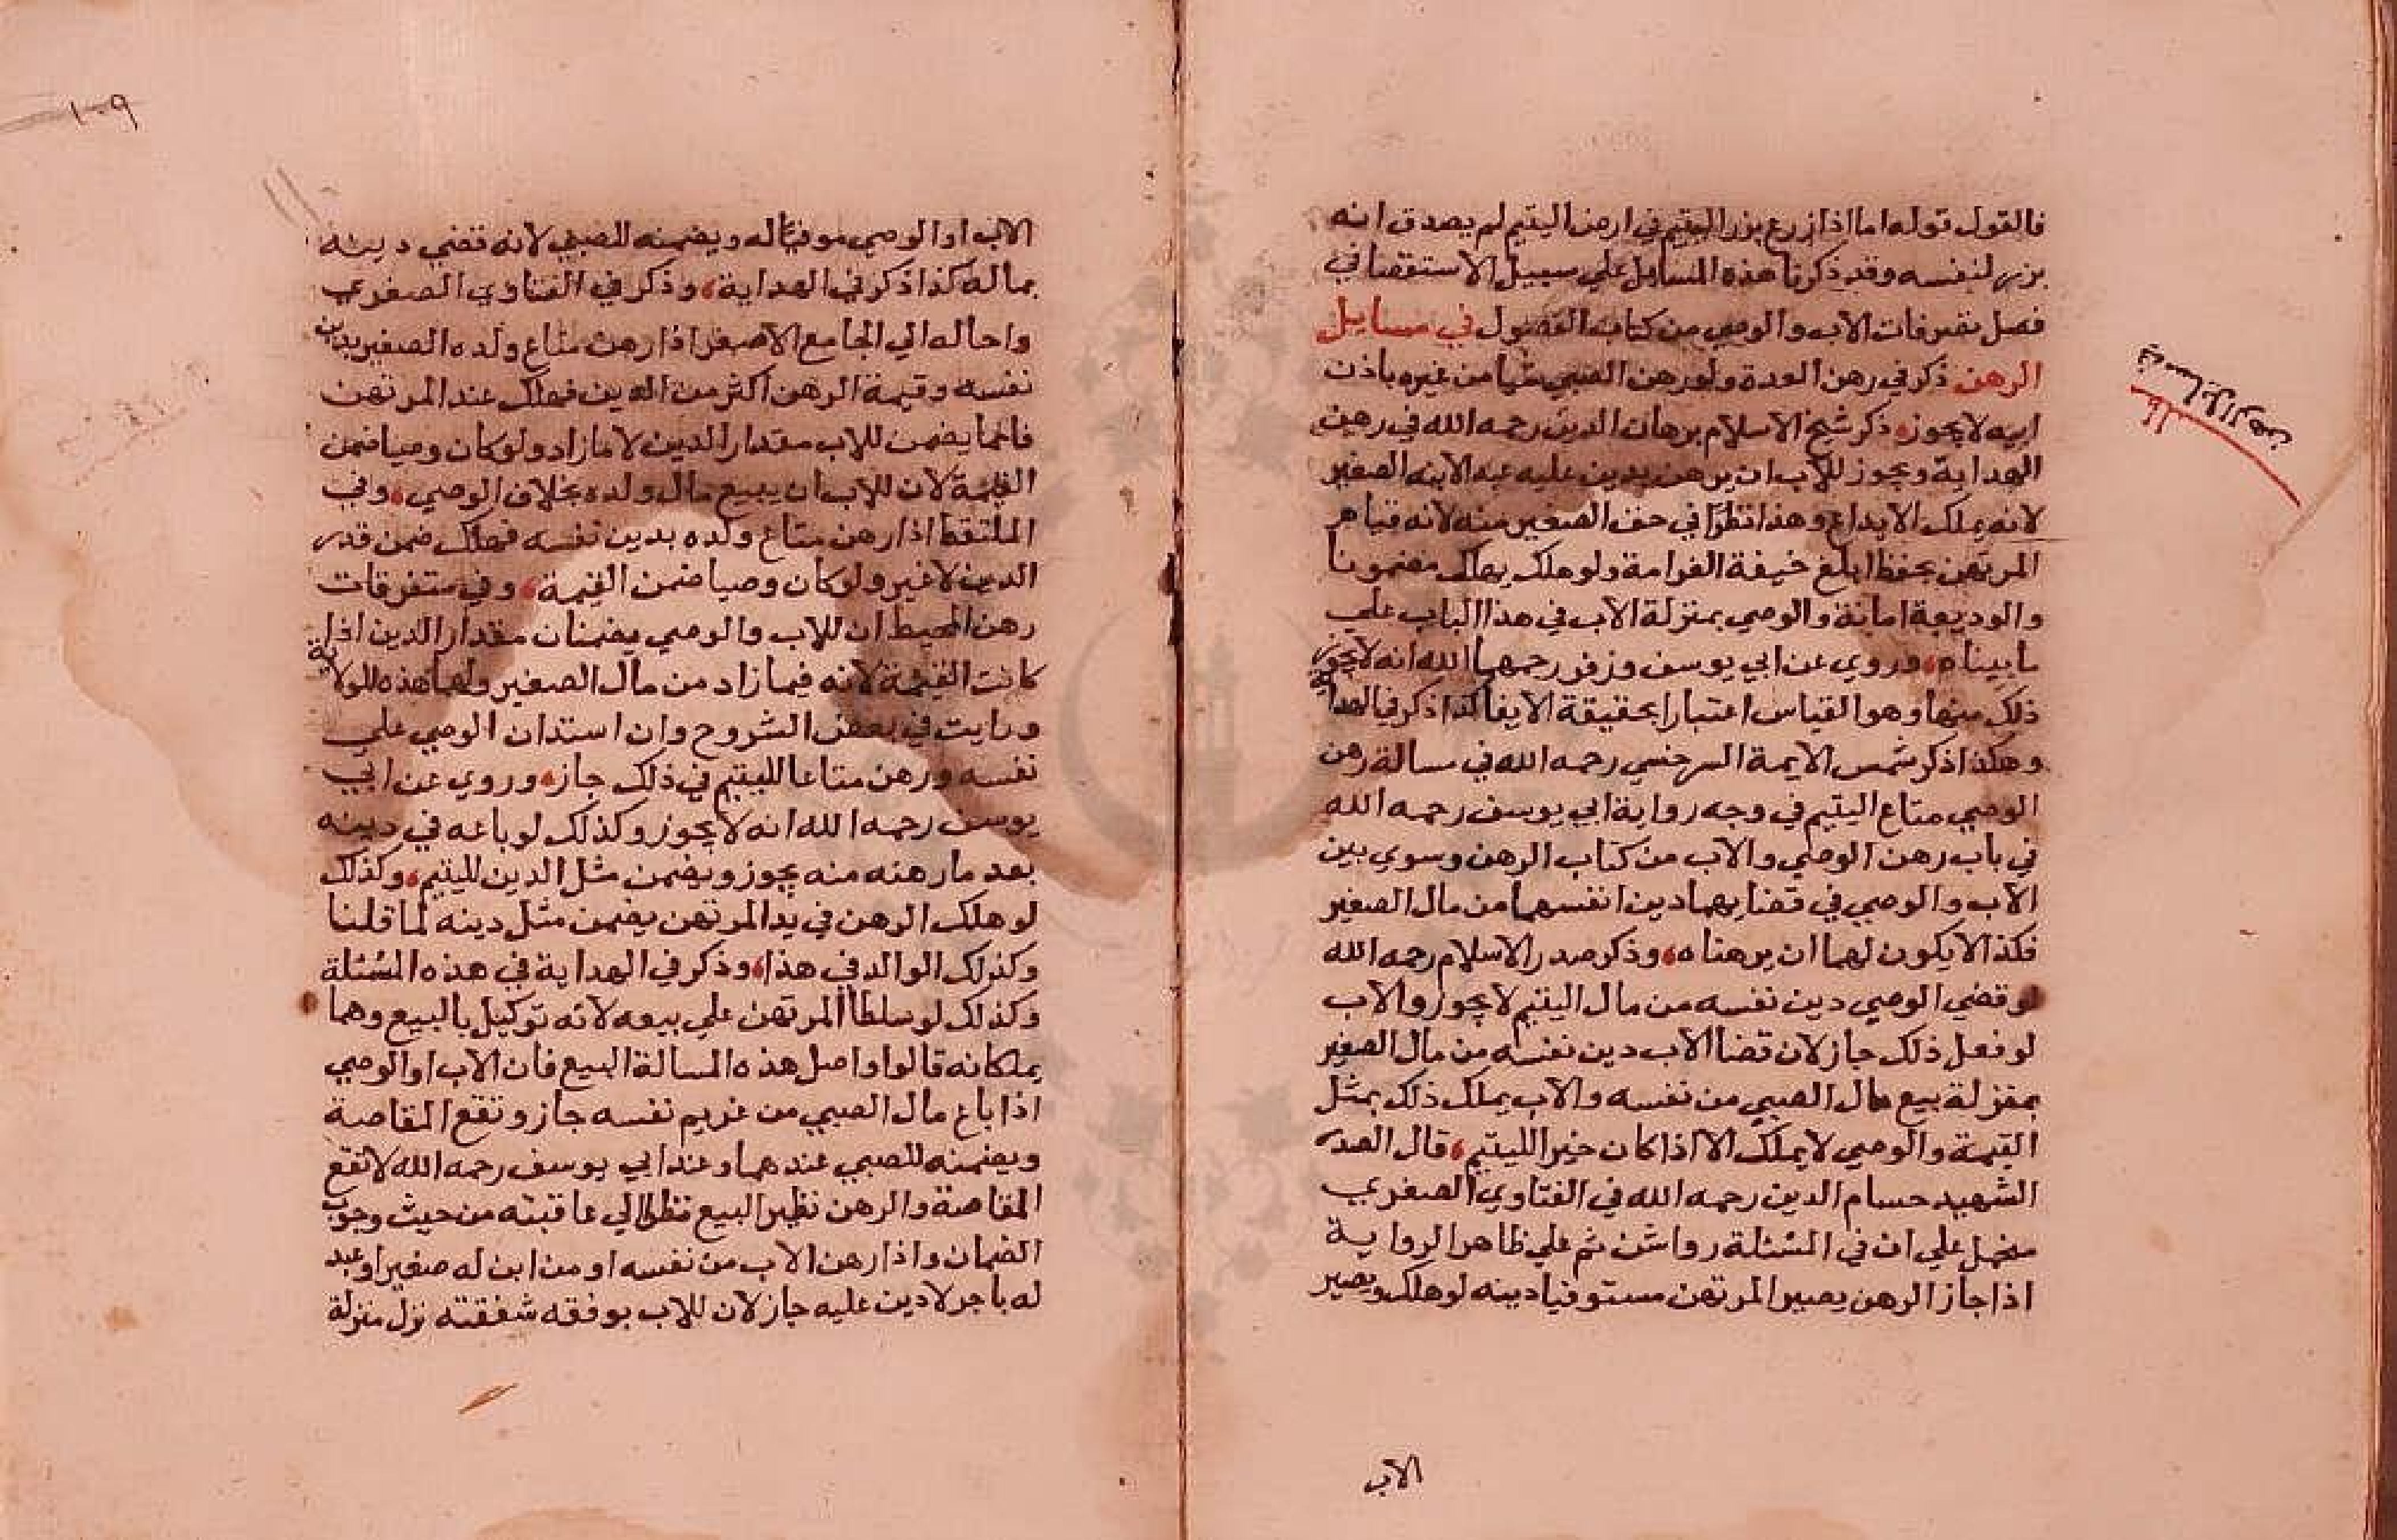 فالقول قوله اما اذا زرع بزر اليتيم في ارض اليتيم لم يصدق انه
بزره لنفسه وقد ذكرنا هذه المسايل علي سبيل الاستقصا في
فصل تصرفات الاب والوصي من كتاب الفصول في مسايل
الرهن ذكر في رهن العدة ولو رهن الصبي شيا من غيره باذن
ابيه لا يجوز وذكر شيخ الاسلام برهان الدين رحمه الله في رهن
الهداية ويجوز للاب ان يرهن بدين عليه عبد الابنه الصغير
لانه يملك الايداع وهذا نظرا في حق الصغير منه لانه قيام
المرتهن بحفظ ابلغ خيفة الغرامة ولو هلك يهلك مضمونا
والوديعة امانة والوصي بمنزلة الاب في هذا الباب علي
ما بيناه وروي عن ابي يوسف وزفر رحمهما الله انه لا يجوز
ذلك منهما وهو القياس اعتبارا بحقيقة الايفا كذا ذكر في الهداية
وهكذا ذكر شمس الايمة السرخسي رحمه الله في مسالة رهن
الوصي متاع اليتيم في وجه رواية ابي يوسف رحمه الله
في باب رهن الوصي والاب من كتاب الرهن وسوي بين
الاب والوصي في قضايهما دين انفسهما من مال الصغير
فكذا لا يكون لهما ان يرهناه وذكر صدر الاسلام رحمه الله
لو قضي الوصي دين نفسه من مال اليتيم لا يجوز والاب
لو فعل ذلك جاز لان قضا الاب دين نفسه من مال الصغير
بمنزلة بيع مال الصبي من نفسه والاب يملك ذلك بمثل
القيمة والوصي لا يملك الا اذا كان خيرا لليتيم قال الصدر
الشهيد حسام الدين رحمه الله في الفتاوي الصغري
علي ان في المسئلة روايتين ثم علي ظاهر الرواية
اذا جاز الرهن يصير المرتهن مستوفيا دينه لو هلك ويصير
الاب
في مسايل الرهن
مطلب
١٠٩
الاب او الوصي موفيا له ويضمنه للصبي لانه قضي دينه
بماله كذا ذكر في الهداية وذكر في الفتاوي الصغري
واحاله الي الجامع الاصغر اذا رهن متاع ولده الصغير بدين
نفسه وقيمة الرهن اكثر من الدين فهلك عند المرتهن
فانما يضمن للاب مقدار الدين لا ما زاد ولو كان وصيا ضمن
القيمة لان للاب ان يبيع مال ولده بخلاف الوصي وفي
الملتقط اذا رهن متاع ولده بدين نفسه فهلك ضمن قدر
الدين لا غير ولو كان وصيا ضمن القيمة وفي متفرقات
رهن المحيط ان للاب والوصي يضمنان مقدار الدين اذا
كانت القيمة لانه فيما زاد من مال الصغير ولهما هذه الولاية
ورايت في بعض الشروح وان استدان الوصي علي
نفسه ورهن متاعا لليتيم في ذلك جاز وروي عن ابي
يوسف رحمه الله انه لا يجوز وكذلك لو باعه في دينه
بعد ما رهنه منه يجوز ويضمن مثل الدين لليتيم وكذلك
لو هلك الرهن في يد المرتهن يضمن مثل دينه لما قلنا
وكذلك الوالد في هذا وذكر في الهداية في هذه المسئلة
وكذلك لو سلطا المرتهن علي بيعه لانه توكيل بالبيع وهما
يملكانه قالوا واصل هذه المسالة البيع فان الاب او الوصي
اذا باع مال الصبي من غريم نفسه جاز وتقع المقاصة
ويضمنه للصبي عندهما وعند ابي يوسف رحمه الله لا تقع
المقاصة والرهن نظير البيع نظرا الي عاقبته من حيث وجوب
الضمان واذا رهن الاب من نفسه او من ابن له صغير او عبد
له باجر لا دين عليه جاز لان للاب بوفقه شفقته نزل منزلة